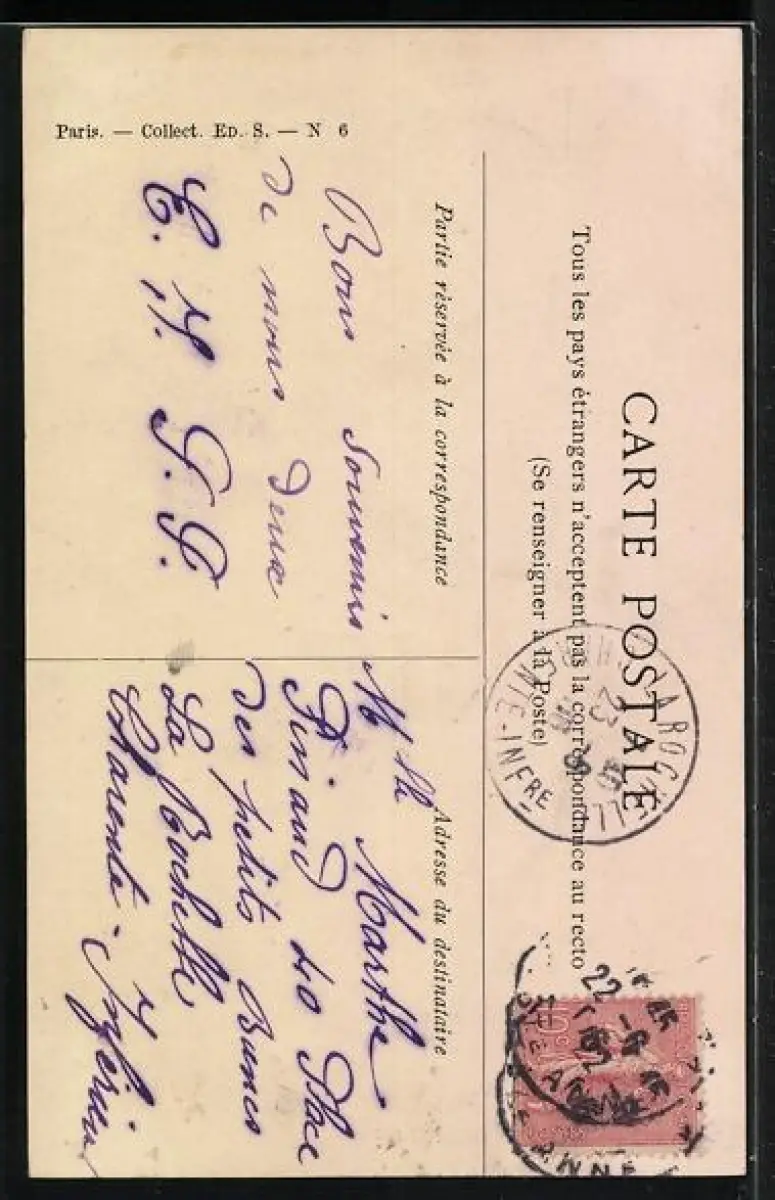 CARTE POSTALE
Tous les pays étrangers n'acceptent pas la correspondance au recto
(Se renseigner à la Poste)
Partie réservée à la correspondance
Bons souvenirs
de nous deux
Adresse du destinataire
Mlle Marthe
Pinaud 40 Place
des petits Bancs
La Rochelle
Charente-Inférieu
Paris. — Collect. ED. S. — N 6
LA ROCHELLE
TE-INFRE
22